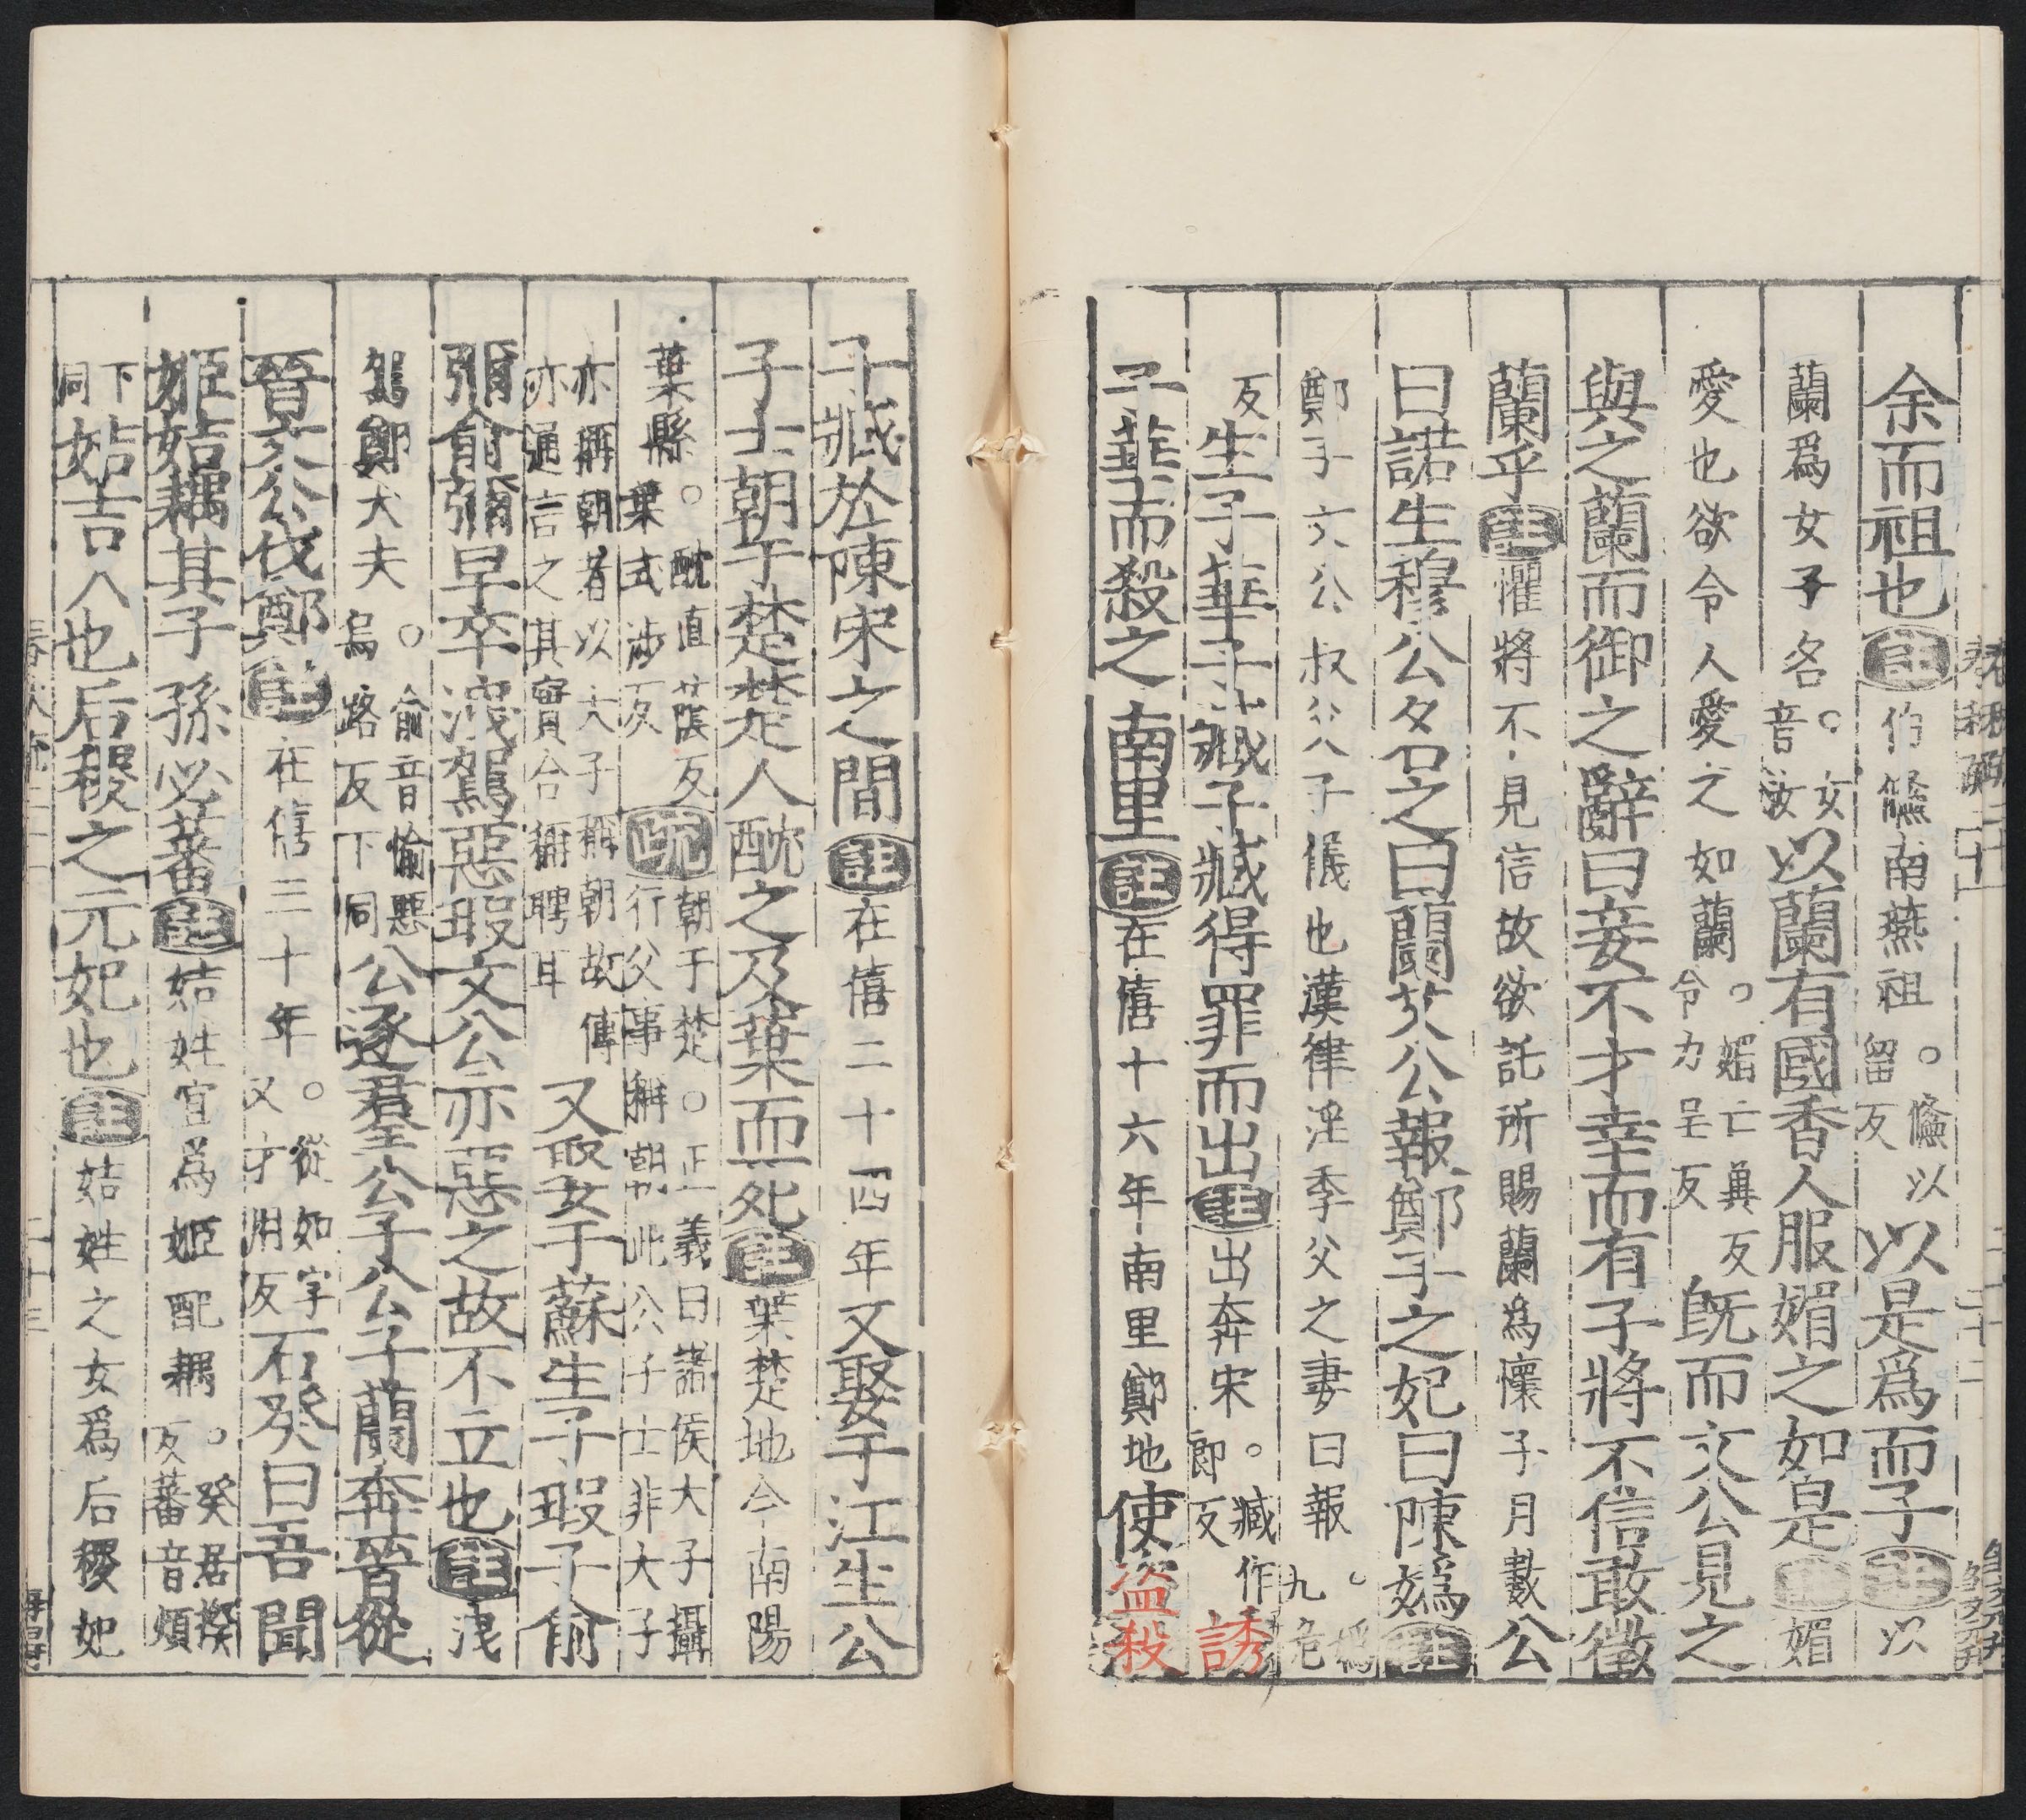 余而祖也註伯鯈南燕祖。鯈以留反以是爲而子註以
蘭爲女子名。女音汝以蘭有國香人服媚之如是註媚
愛也欲令人愛之如蘭。媚亡兾反令力呈反旣而文公見之
與之蘭而御之辭曰妾不才幸而有子將不信敢徵
蘭乎註懼將不見信故欲託所賜蘭為懷子月數公
曰諾生穆公名之曰蘭文公報鄭子之妃曰陳嬀註
鄭子文公叔父子儀也漢律淫季父之妻曰報。嬀九危
反生子華子臧子臧得罪而出註出奔宋。臧作郎反誘
子華而殺之南里註在僖十六年南里鄭地使盜殺
子臧於陳宋之間註在僖二十四年又娶于江生公
子士朝于楚楚人酖之及葉而死註葉楚地今南陽
葉縣。酖直蔭反葉式涉反疏朝于楚。正義曰諸侯大子攝行父事稱朝此公子士非大子
亦稱朝者以大子稱朝故傳亦通言之其實合稱聘耳又娶于蘇生子瑕子俞
彌俞彌早卒洩駕惡瑕文公亦惡之故不立也註洩
駕鄭大夫。俞音愉惡烏路反下同公逐羣公子公子蘭奔晉從
晉文公伐鄭註在僖三十年。從如字又才用反石癸曰吾聞
姬姞耦其子孫必蕃註姞姓宜爲姬配耦。癸居揆反蕃音煩
下同姞吉人也后稷之元妃也註姞姓之女爲后稷妃